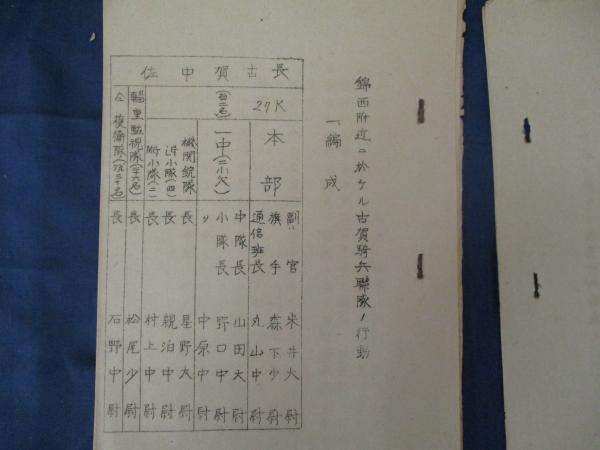 錦西附近ニ於ケル古賀騎兵聯隊ノ行動
一編成
長古賀中佐
27K
本部
副官 米井大尉
旗手 森下少尉
通信班長 丸山中尉
一中(二小欠)
中隊長 山田大尉
小隊長 野口中尉
〃 中原中尉
機関銃隊 長 星野大尉
小隊(四) 長 親泊中尉
小隊(二) 長 村上中尉
輜重監視隊 長 松尾少尉
仝 援衛隊 長 石野中尉